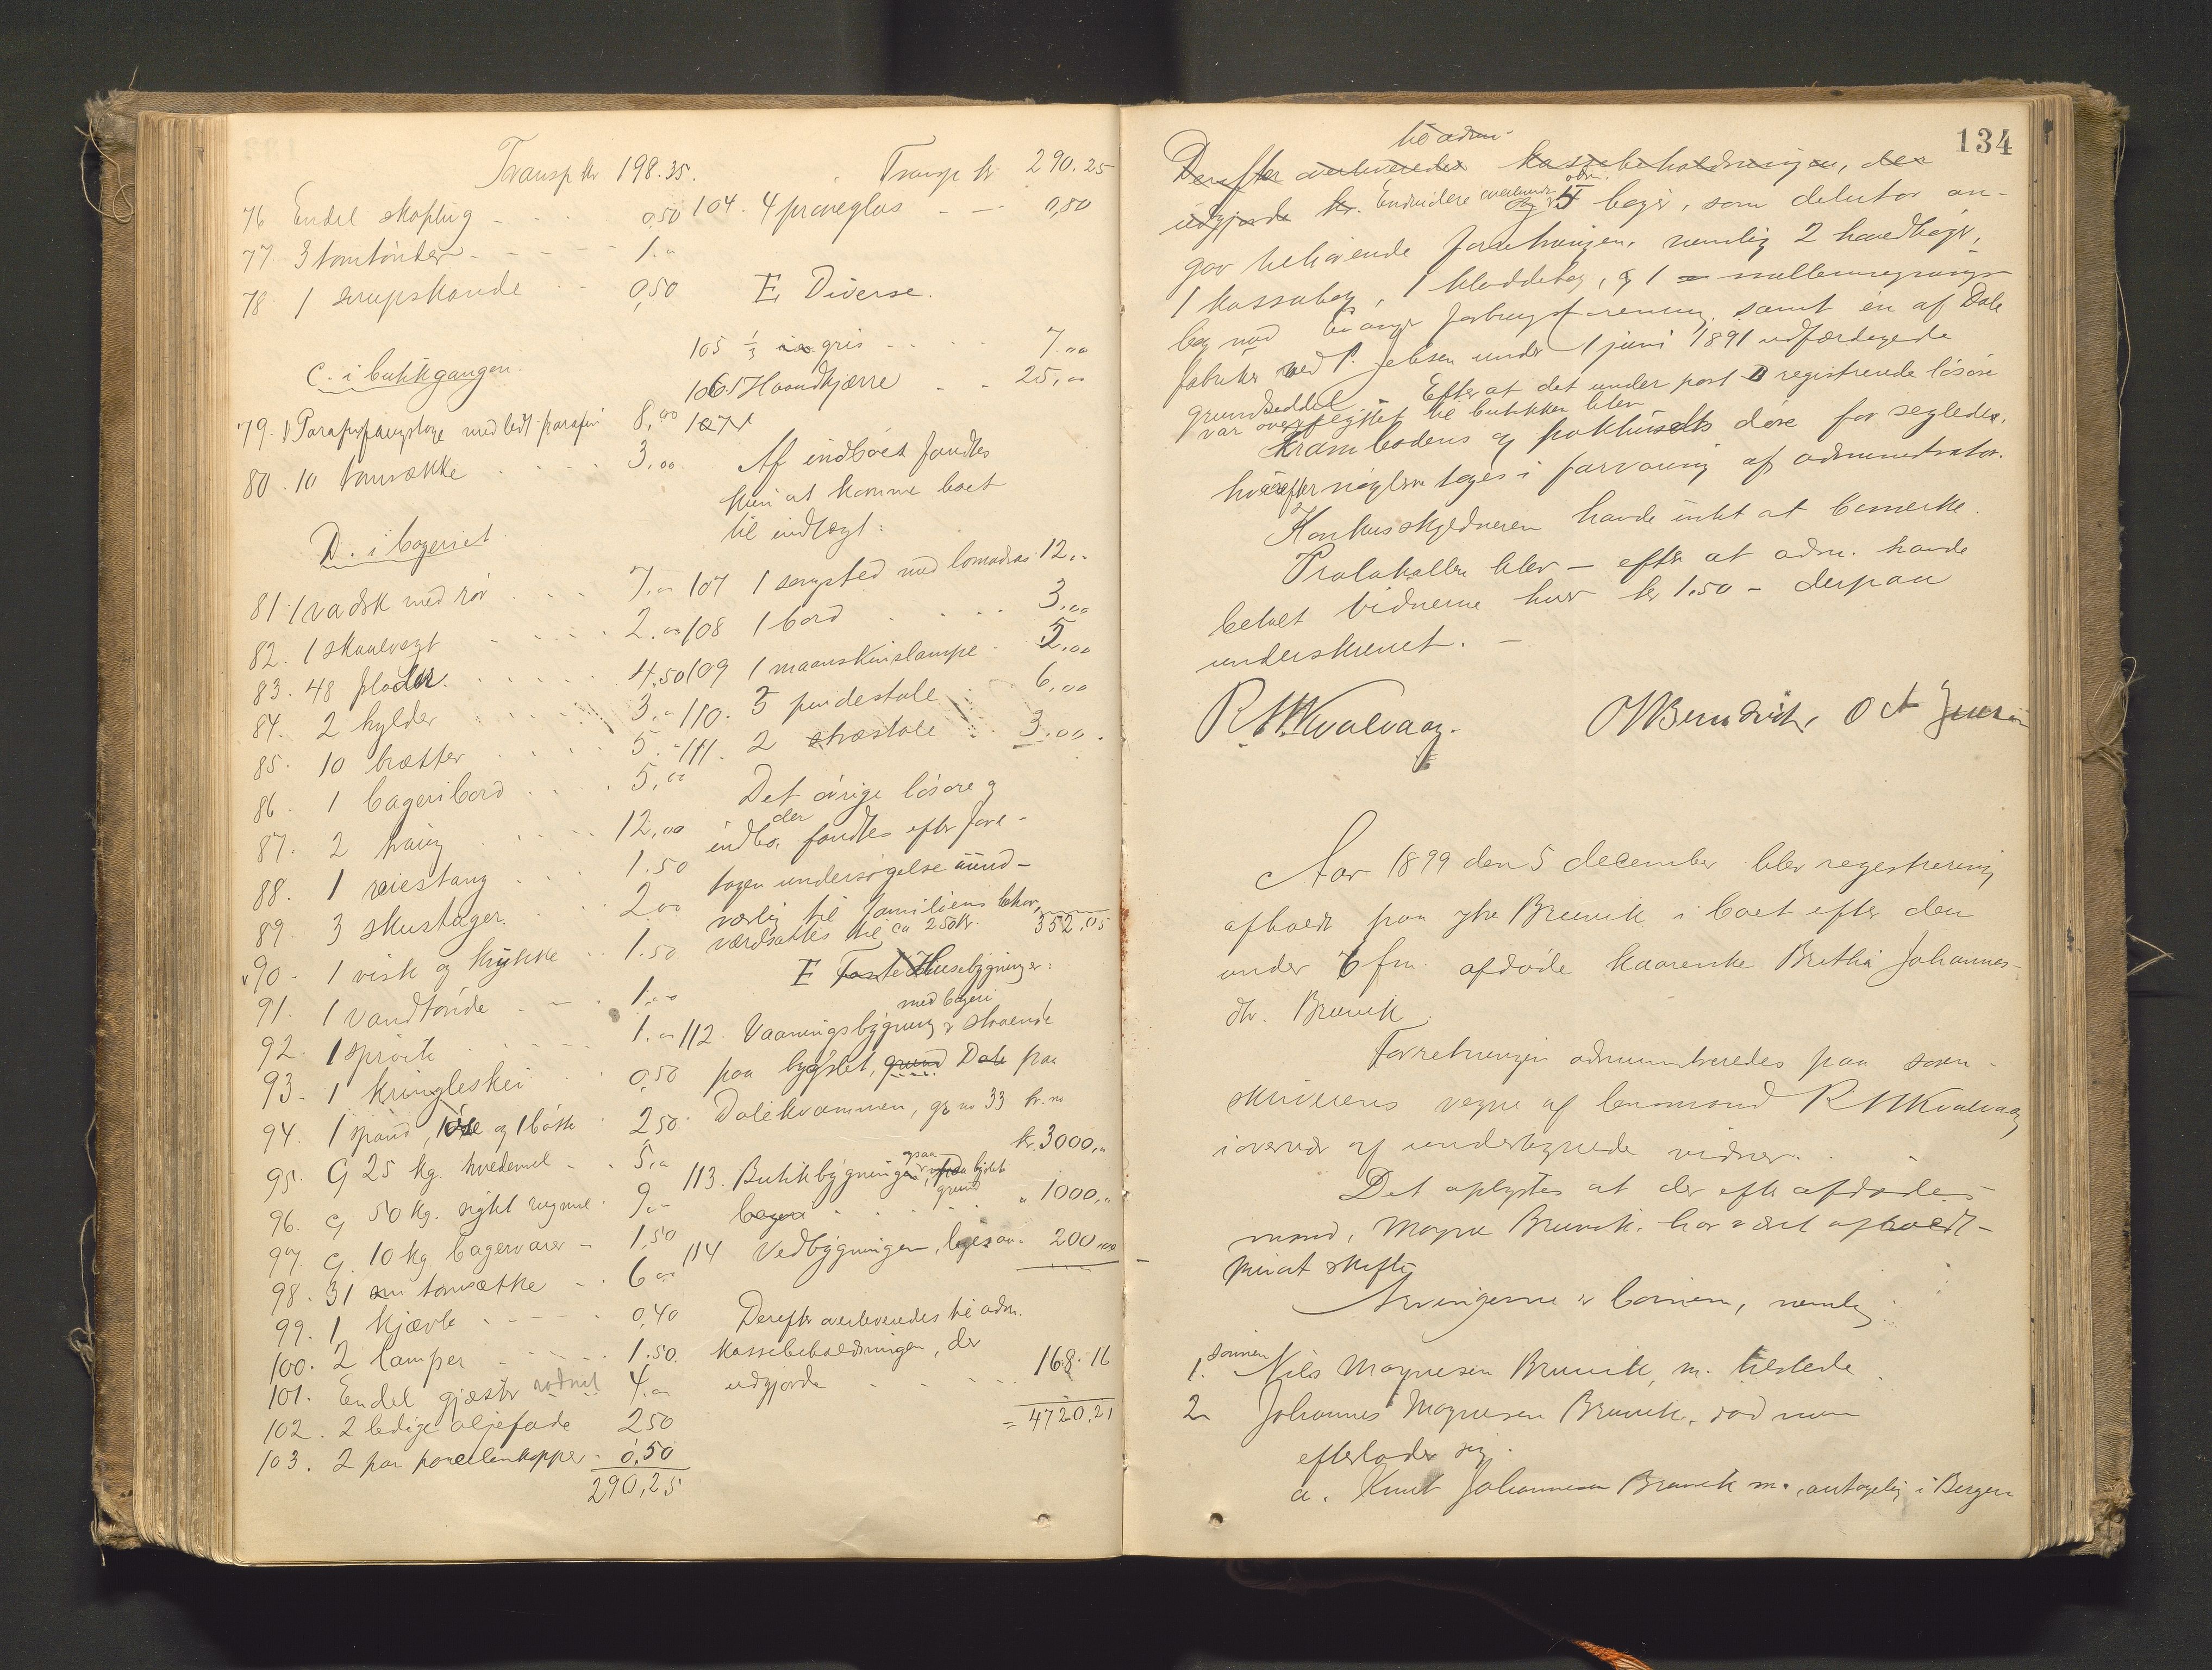 Transp kr 198.35.
76 Endel skoptug - - - 0,50
77. 3 tomtönder - - - - 1.„
78. 1 sirupskande - - 0,50
C. i butikgangen.
79. 1 Parafinfangstage med lidt parafin 8,00
80. 10 tomsække - - - - 3,00
D. i bageriet
81. 1 vadsk med rör - - - 7.„
82. 1 skaalvægt - - - - 2.„
83. 48 plader. - - - - 4,50
84. 2 hylder - - - - 3.„
85. 10 brætter - - - - 5.„
86. 1 bageribord - - - - 5,00
87. 2 traug - - - - 12,00
88. 1 reiestang - - - 1.50
89. 3 skustager. - - 2,00
90. 1 visk og krykke - - 1.50
91. 1 vandtönde - - - 1.„
92. 1 spröite - - - - 1.„
93. 1 kringleskei - - 0,50
94. 1 spand, 1 öse og 1 bötte 2.50
95. C 25 kg. hvedemel - - 5.„
96. C 50 kg. sigtet rugmel - 9.„
97. C. 10 kg bagervarer - 1,50
98. 31 tomsække - - 6.„
99. 1 kjævle - - - - 0,40
100. 2 lamper - - - - 1.50.
101. Endel gjæster 4.„
102. 2 ledige oljefade 2.50
103. 2 par porcellenkopper - 0,50
290,25
Transp kr 290.25
104. 4 pröveglas - - - 0,80
E Diverse.
105 1/3 gris - - - - 7.„
106 1 Haandkjærre - - 25,„
107
Af indboet fandtes
kun at komme boet
til indtægt:
107 1 sengested med bomadras 12.„
108 1 bord - - - - 3,00
109 1 maanskinslampe - 5,00
110. 3 pindestole - 6,00
111. 2 træstole - - 3,00.
Det övrige lösöre og
indbo, der fandtes efter fore-
tagen undersögelse uund-
værlig til familiens behov,
værdsattes til ca 250 kr. 352.05
F Faste Husebygninger:
112. Vaaningsbygning med bageri staaende
paa bygslet, grund Dale paa
Dalekvammen, g no 33 br. no
kr. 3000,„
113. Butikbygningen, ogsaa paa bygslet grund
bageri - - - - „ 1000,„
114 Vedbygningen, ligesaa „ 200,00
Derefter overleveredes til adm.
kassebeholdningen, der
udgjorde - - - - 168.16
= 4720,21
134
til adm.
Derefter overleveredes kassebeholdningen, der
udgjorde kr. Endvidere overleveredes adm. 5 böger, som debitor an-
gav tilhörende forretningen, nemlig 2 hovedböger,
1 kassabog, 1 kladdebog, og 1 mellemregnings-
bog med forbrugsforening, samt en af Dale
fabriker ved P. Jebsen under 1 juni 1891 udfærdigede
grundseddel. Efter at det under post D registrerede lösöre
var overflyttet til butikken blev
Krambodens og pakhusets döre for seglede,
hvorefter nöglerne toges i forvaring af administrator.
Konkursskyldneren havde intet at bemerke.
Protokollen blev - efter at adm. havde
betalt vidnerne hver kr 1.50 - derpaa
underskrevet. -
R. M Kvalvaag.
Aar 1899 den 5 december blev registrering
afholdt paa ytre Bruvik i boet efter den
under fm. afdöde kaarenke Bretha Johannes-
dtr. Bruvik.
Forretningen administreredes paa soren-
skriverens vegne af lensmand R M Kvalvaag
i overvær af undertegnede vidner.
Det oplystes at der efter afdödes
mand, Magne Bruvik, har været afholdt
privat skifte
Arvingerne er börnene, nemlig:
1. sönnen Nils Magnesen Bruvik, m. tilstede.
2. Johannes Magnesen Bruvik, död men
efterlader sig:
a. Knut Johannesen Bruvik m., antagelig i Bergen